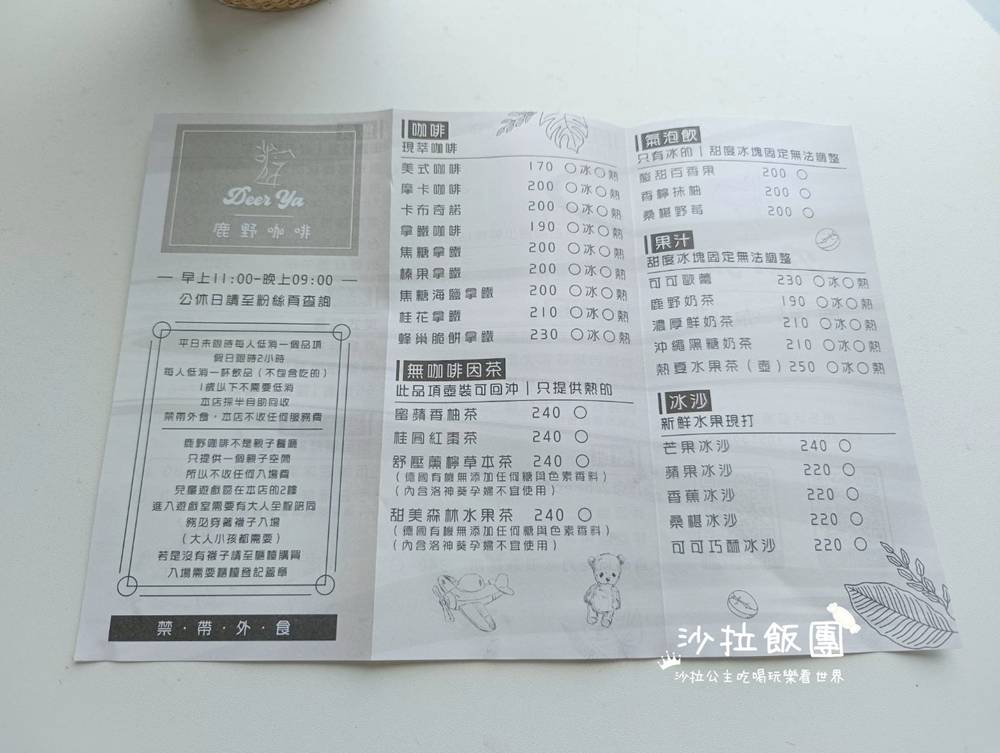 Deer Ya
鹿野咖啡
早上11:00-晚上09:00
公休日請至粉絲頁查詢
平日未限時每人低消一個品項
假日限時2小時
每人低消一杯飲品（不包含吃的）
1歲以下不需要低消
本店採半自助回收
禁帶外食，本店不收任何服務費
鹿野咖啡不是親子餐廳
只提供一個親子空間
所以不收任何入場費
兒童遊戲區在本店的2樓
進入遊戲室需要有大人全程陪同
務必穿著襪子入場
（大人小孩都需要）
若是沒有襪子請至櫃檯購買
入場需要櫃檯登記蓋章
禁·帶·外·食
咖啡
現萃咖啡
美式咖啡 170 ○冰○熱
摩卡咖啡 200 ○冰○熱
卡布奇諾 200 ○冰○熱
拿鐵咖啡 190 ○冰○熱
焦糖拿鐵 200 ○冰○熱
榛果拿鐵 200 ○冰○熱
焦糖海鹽拿鐵 200 ○冰○熱
桂花拿鐵 210 ○冰○熱
蜂巢脆餅拿鐵 230 ○冰○熱
無咖啡因茶
此品項壺裝可回沖｜只提供熱的
蜜蘋香柚茶 240 ○
桂圓紅棗茶 240 ○
舒壓薰檸草本茶 240 ○
（德國有機無添加任何糖與色素香料）
（內含洛神葵孕婦不宜使用）
甜美森林水果茶 240 ○
（德國有機無添加任何糖與色素香料）
（內含洛神葵孕婦不宜使用）
氣泡飲
只有冰的｜甜度冰塊固定無法調整
酸甜百香果 200 ○
香檸抹柚 200 ○
桑椹野莓 200 ○
果汁
甜度冰塊固定無法調整
可可歐蕾 230 ○冰○熱
鹿野奶茶 190 ○冰○熱
濃厚鮮奶茶 210 ○冰○熱
沖繩黑糖奶茶 210 ○冰○熱
熱夏水果茶（壺）250 ○冰○熱
冰沙
新鮮水果現打
芒果冰沙 240 ○
蘋果冰沙 220 ○
香蕉冰沙 220 ○
桑椹冰沙 220 ○
可可巧酥冰沙 220 ○
沙拉飯團
沙拉公主吃喝玩樂看世界